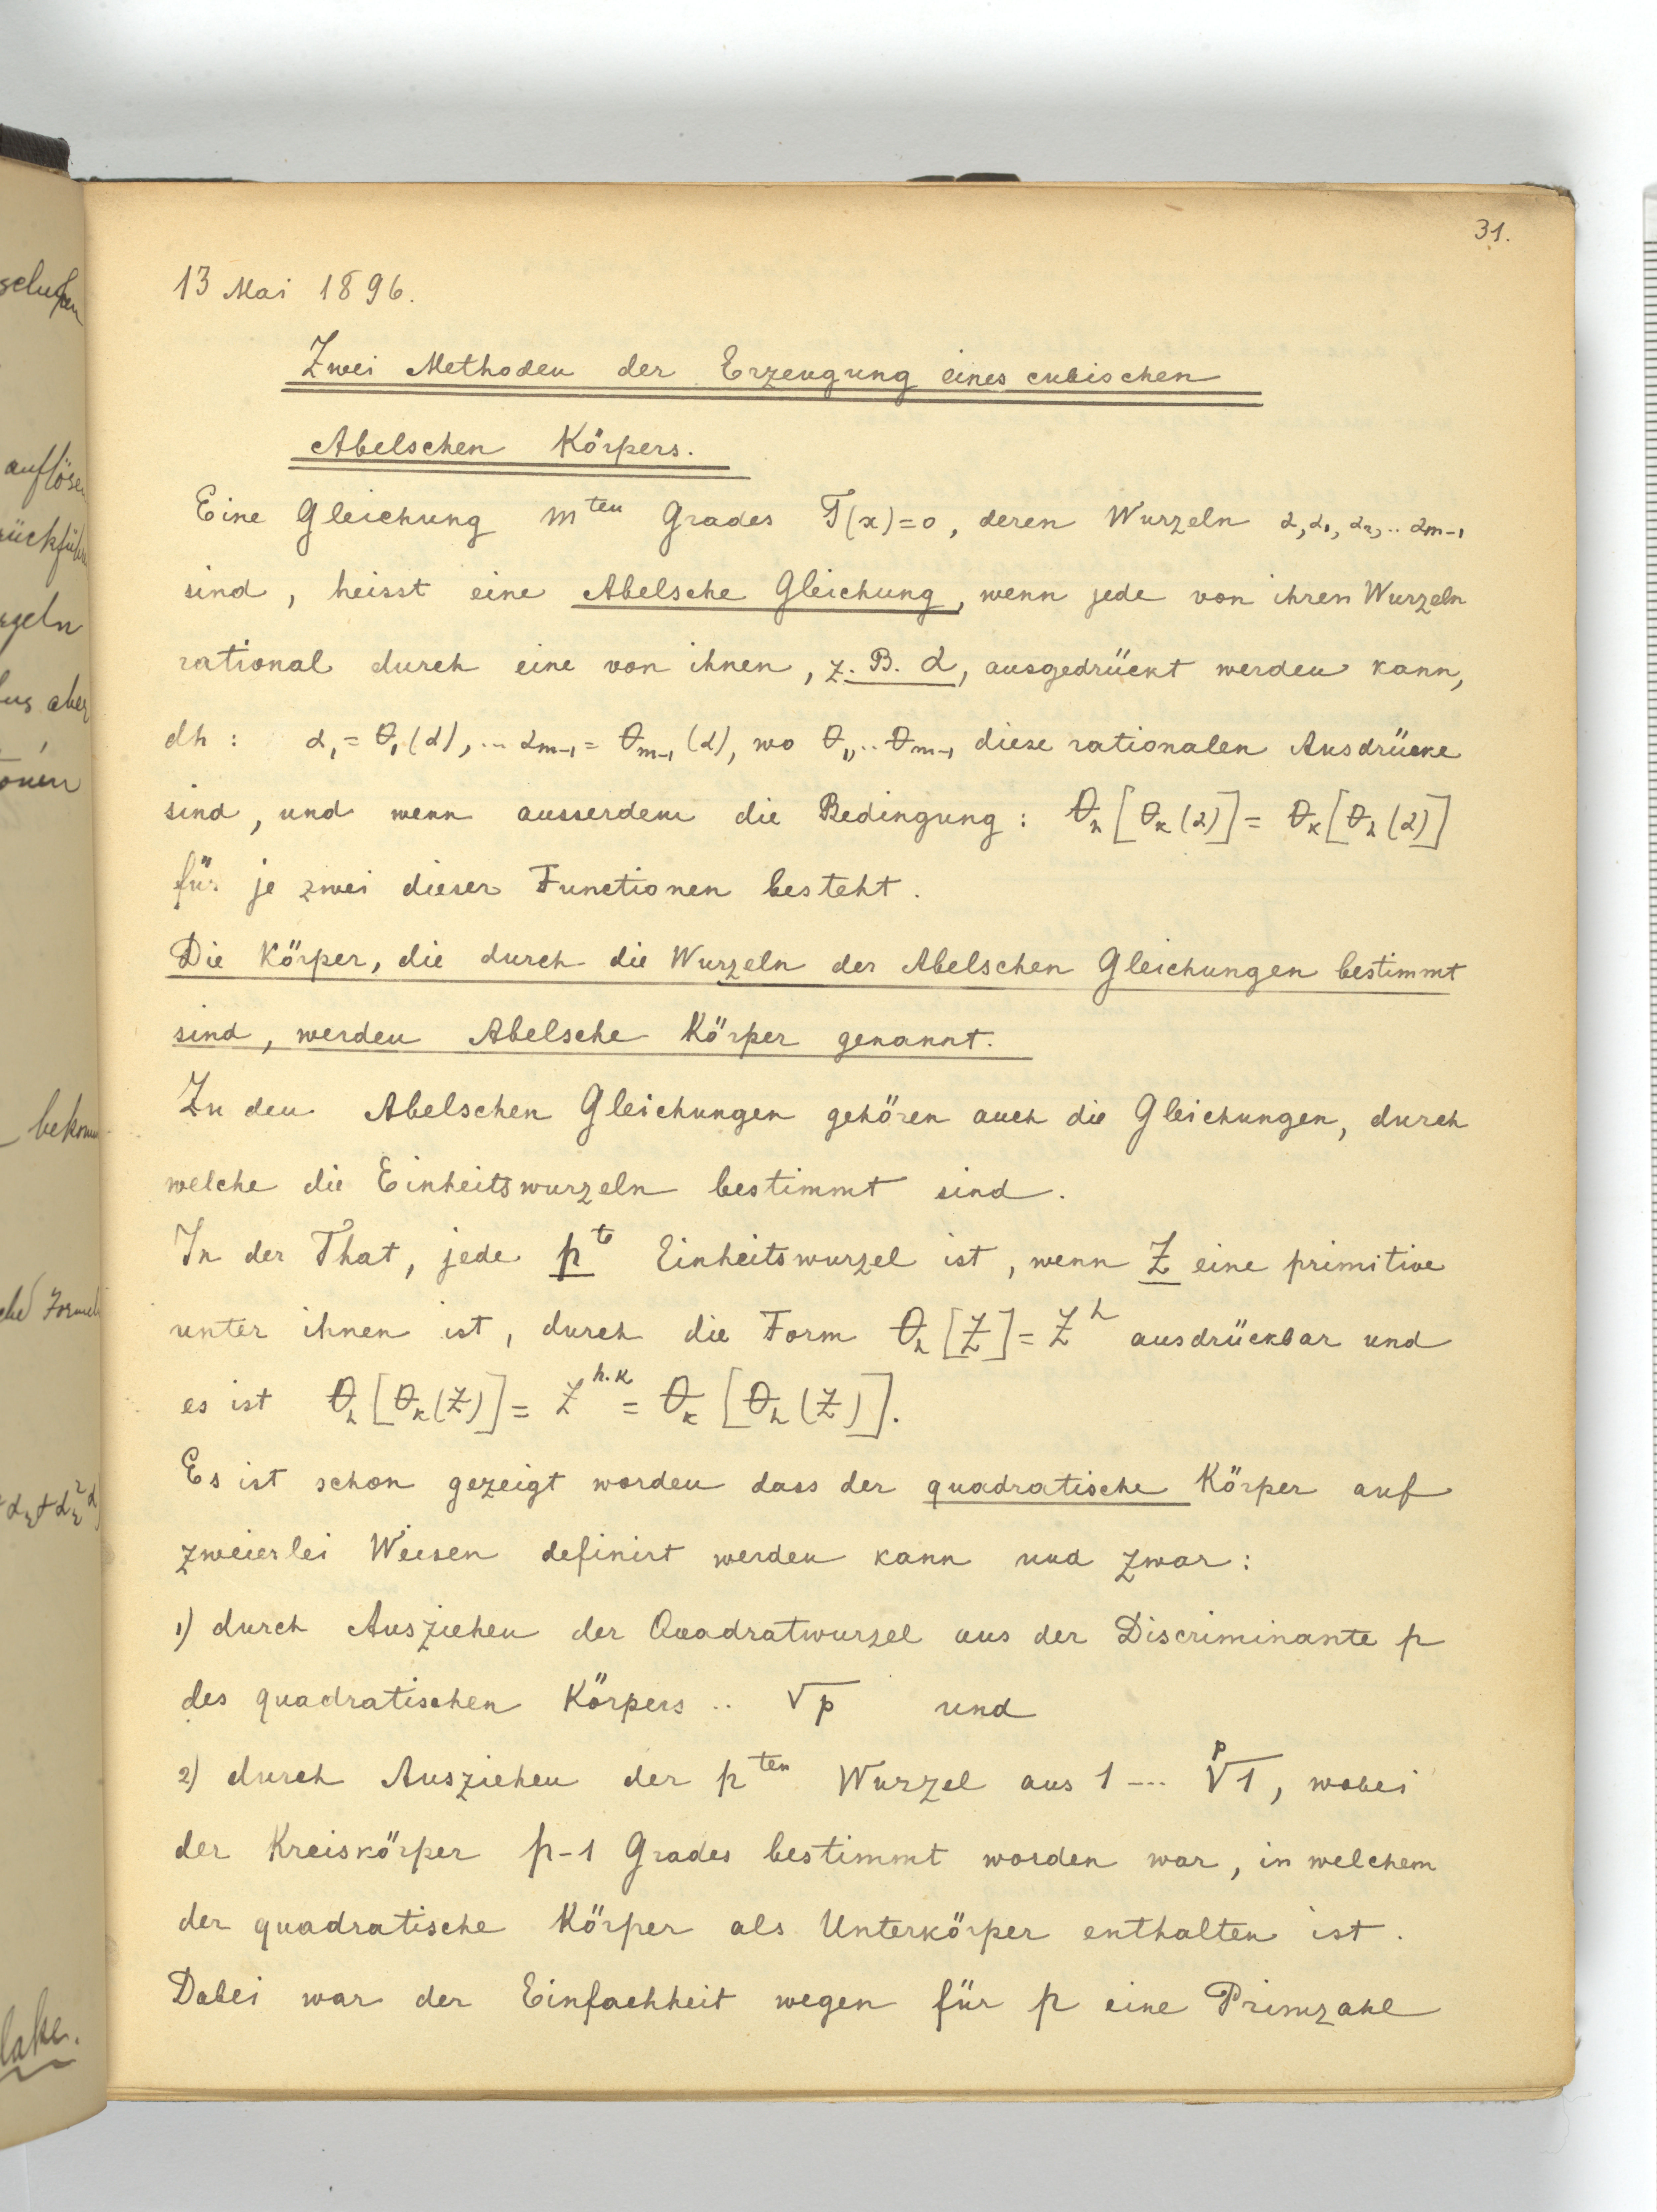 31.
13 Mai 1896.
Zwei Methoden der Erzeugung eines cubischen
Abelschen Körpers.
Eine Gleichung m^ten Grades F(x)=0, deren Wurzeln α, α₁, α₂, .. α_{m-1}
sind, heisst eine Abelsche Gleichung, wenn jede von ihren Wurzeln
rational durch eine von ihnen, z. B. α, ausgedrückt werden kann,
dh : α₁ = θ₁(α), ... α_{m-1} = θ_{m-1}(α), wo θ₁, .. θ_{m-1} diese rationalen Ausdrücke
sind, und wenn ausserdem die Bedingung : θ_h[θ_k(α)] = θ_k[θ_h(α)]
für je zwei dieser Functionen besteht.
Die Körper, die durch die Wurzeln der Abelschen Gleichungen bestimmt
sind, werden Abelsche Körper genannt.
Zu den Abelschen Gleichungen gehören auch die Gleichungen, durch
welche die Einheitswurzeln bestimmt sind.
In der That, jede p^te Einheitswurzel ist, wenn Z eine primitive
unter ihnen ist, durch die Form θ_h[Z] = Z^h ausdrückbar und
es ist θ_h[θ_k(Z)] = Z^{h.k} = θ_k[θ_h(Z)].
Es ist schon gezeigt worden dass der quadratische Körper auf
zweierlei Weisen definirt werden kann und zwar :
1) durch Ausziehen der Quadratwurzel aus der Discriminante p
des quadratischen Körpers .. √p und
2) durch Ausziehen der p^ten Wurzel aus 1 --- ᵖ√1, wobei
der Kreiskörper p-1 Grades bestimmt worden war, in welchem
der quadratische Körper als Unterkörper enthalten ist.
Dabei war der Einfachheit wegen für p eine Primzahl
auflöse
bekomm